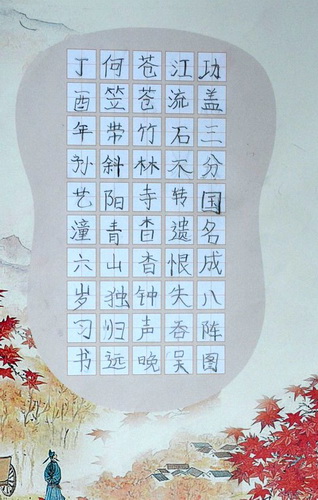 功盖三分国名成八阵图
江流石不转遗恨失吞吴
苍苍竹林寺杳杳钟声晚
何笠带斜阳青山独归远
丁酉年孙艺潼六岁习书